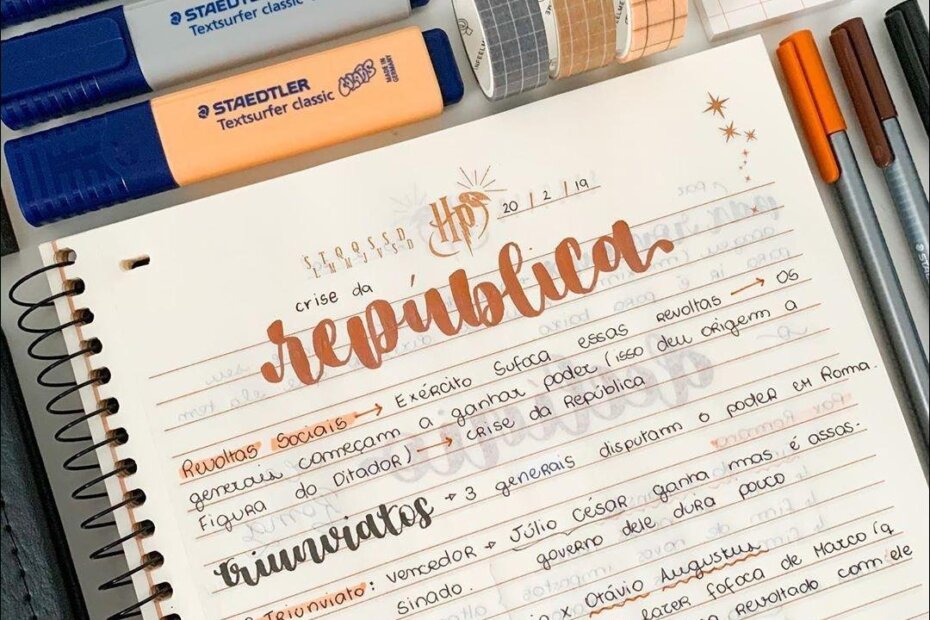 STAEDTLER
Textsurfer classic
STAEDTLER
Textsurfer classic
MADE IN GERMANY
HP
20 / 2 / 19
S T Q Q S S D
crise da
república
Revoltas Sociais → Exército sufoca essas revoltas → os
generais começam a ganhar poder (isso deu origem a
figura do Ditador) → crise da República
triunviratos → 3 generais disputam o poder em Roma.
Triunvirato: vencedor → Júlio César ganha mas é assas-
sinado. governo dele dura pouco
x Otávio Augustus
fazer fofoca de Marco
revoltado com ele
STAEDTLER